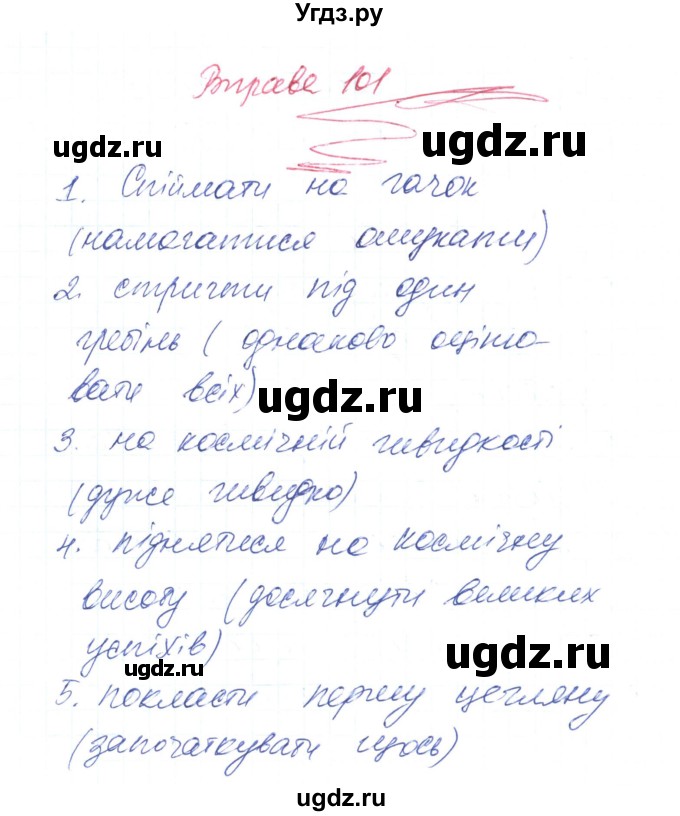 Угдз.ру
Вправа 101
ugdz.ru
ugdz.ru
1. Спіймати на гачок
(намагатися ошукати)
2. стригти під один
гребінь (однаково оціню-
вати всіх)
ugdz.ru
3. на космічній швидкості
(дуже швидко)
4. піднятися на космічну
висоту (досягнути великих
успіхів)
ugdz.ru
ugdz.ru
5. покласти першу цеглину
(започаткувати щось)
ugdz.ru
ugdz.ru